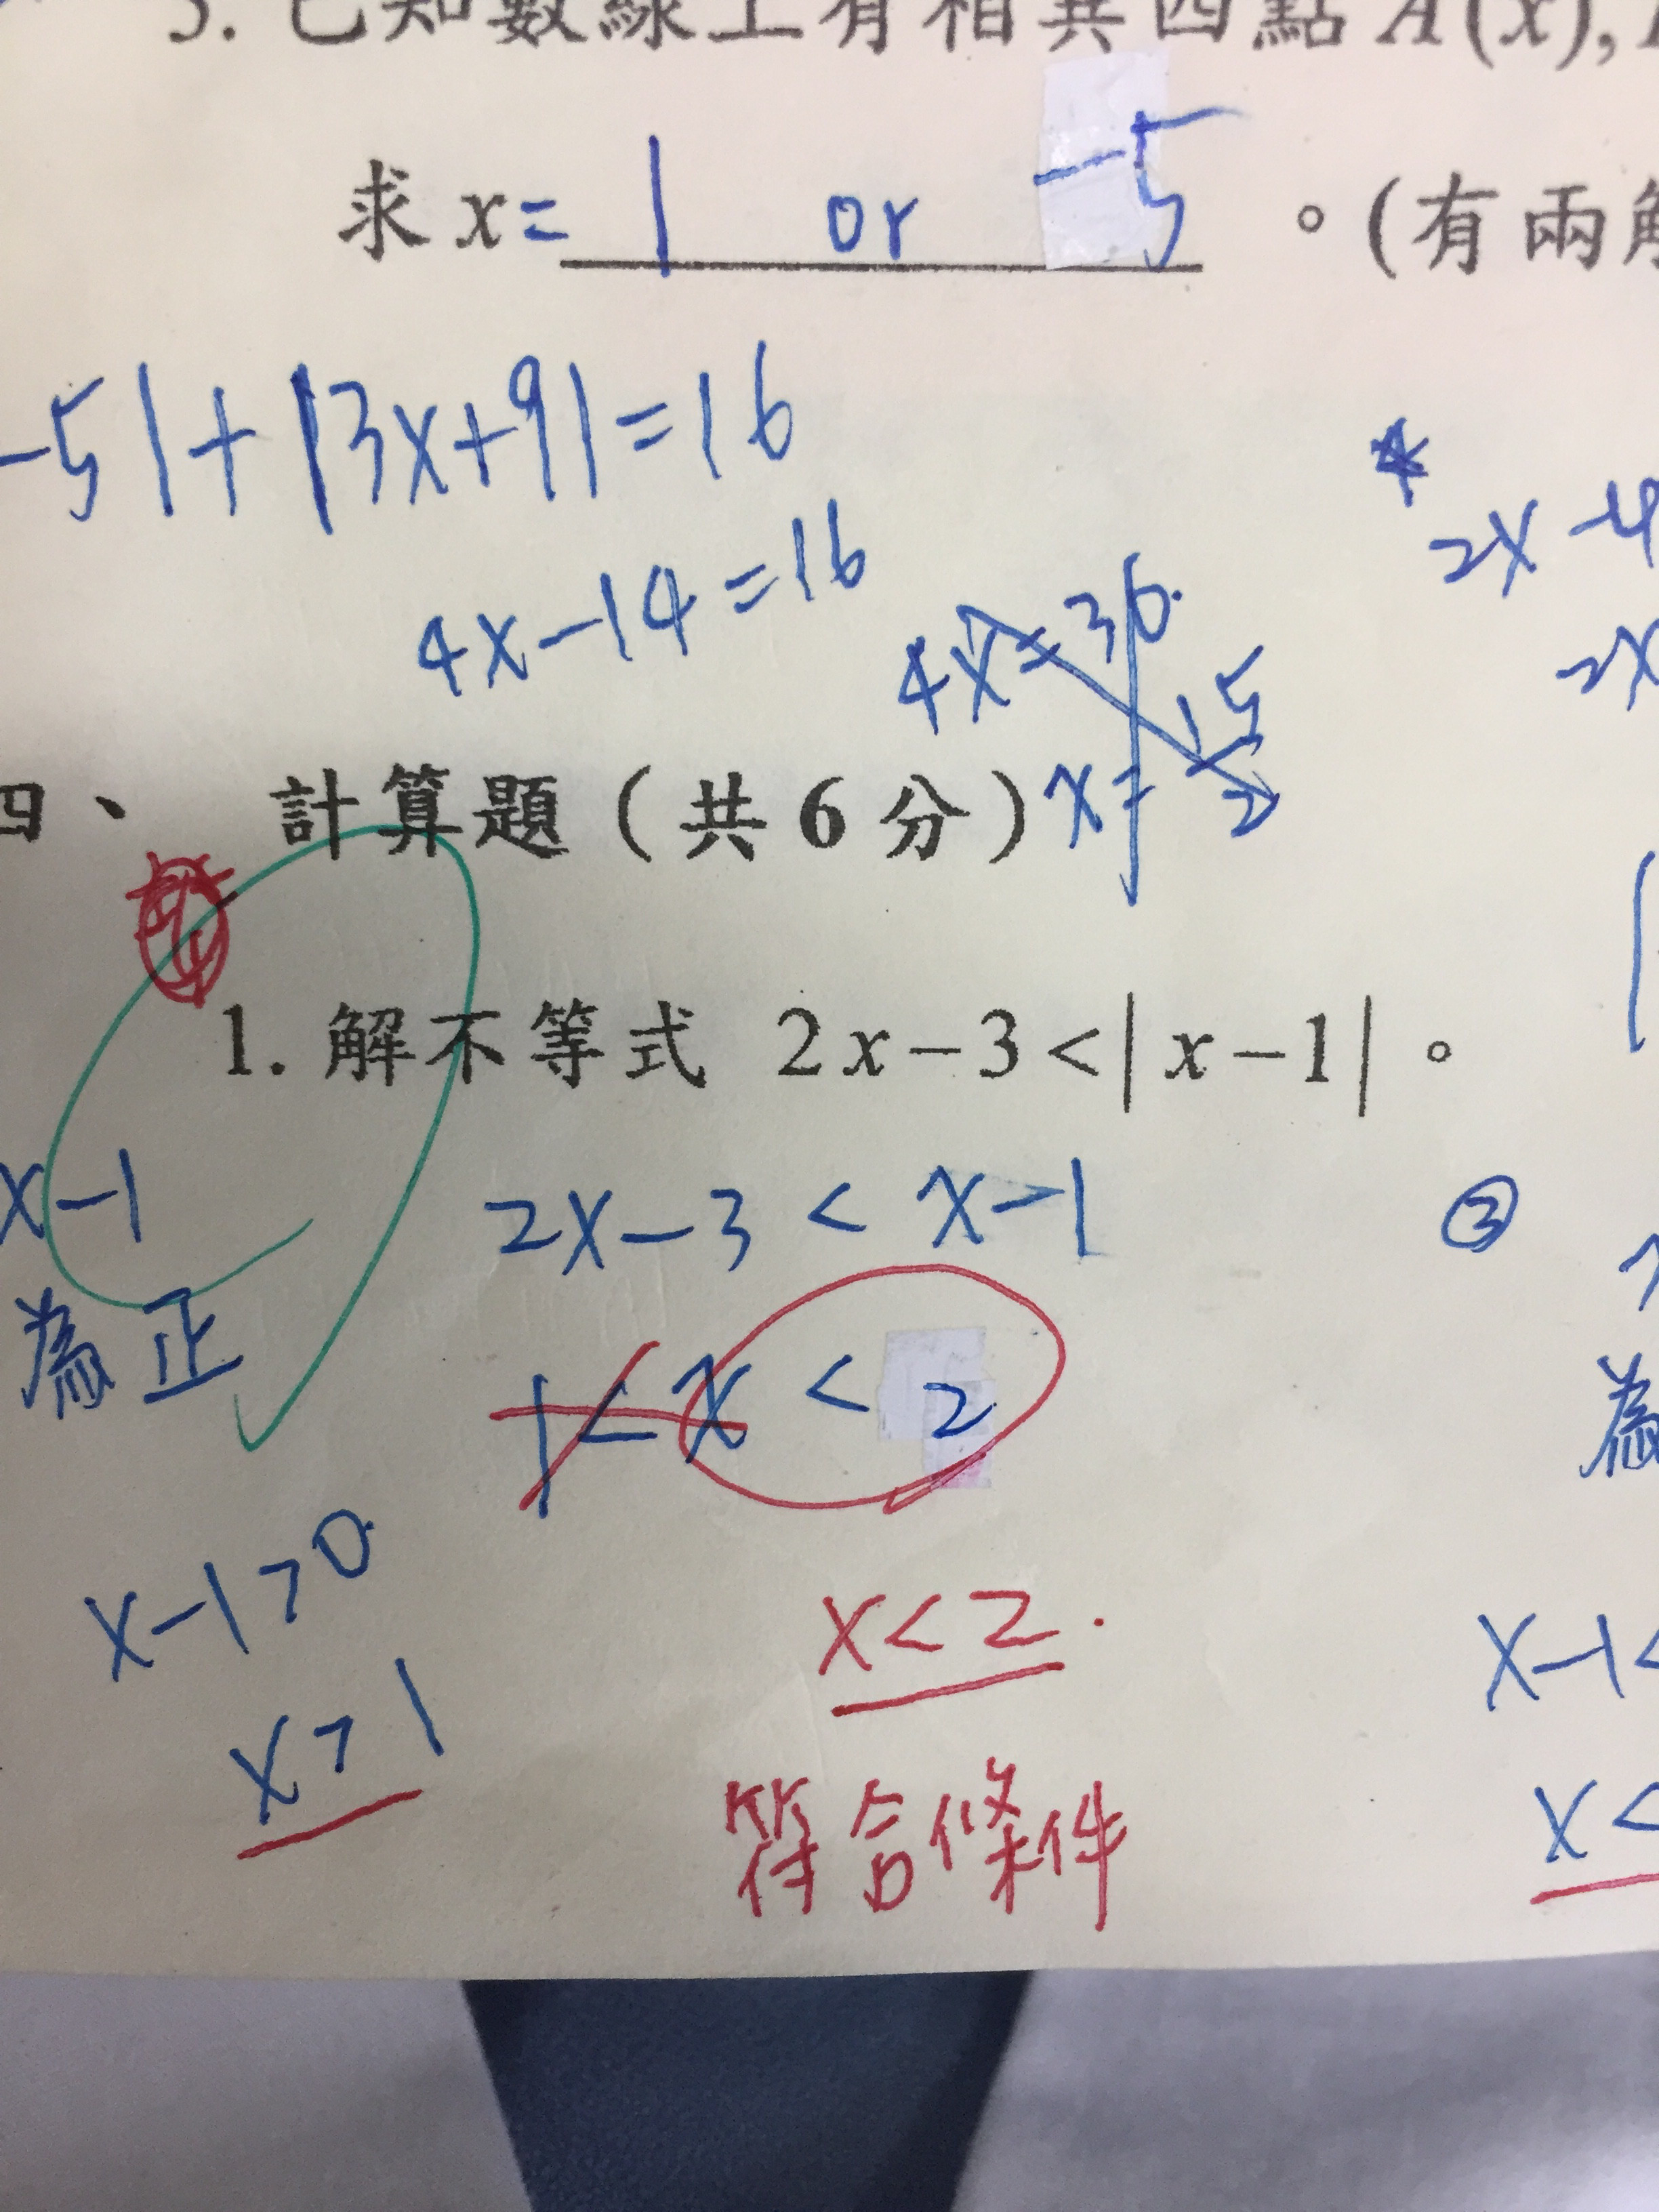 3. 已知數線上有相異四點 A(x),
求 x= 1 or -5 。(有兩解
-5|+|3x+9|=16
4x-14=16
4x=30
x=15/2
2x-4
2x
四、 計算題(共6分)
1. 解不等式 2x-3<|x-1|。
x-1
為正
2x-3 < x-1
②
為
1<x<2
x-1>0
x<2.
x-1<
x>1
x<
符合條件